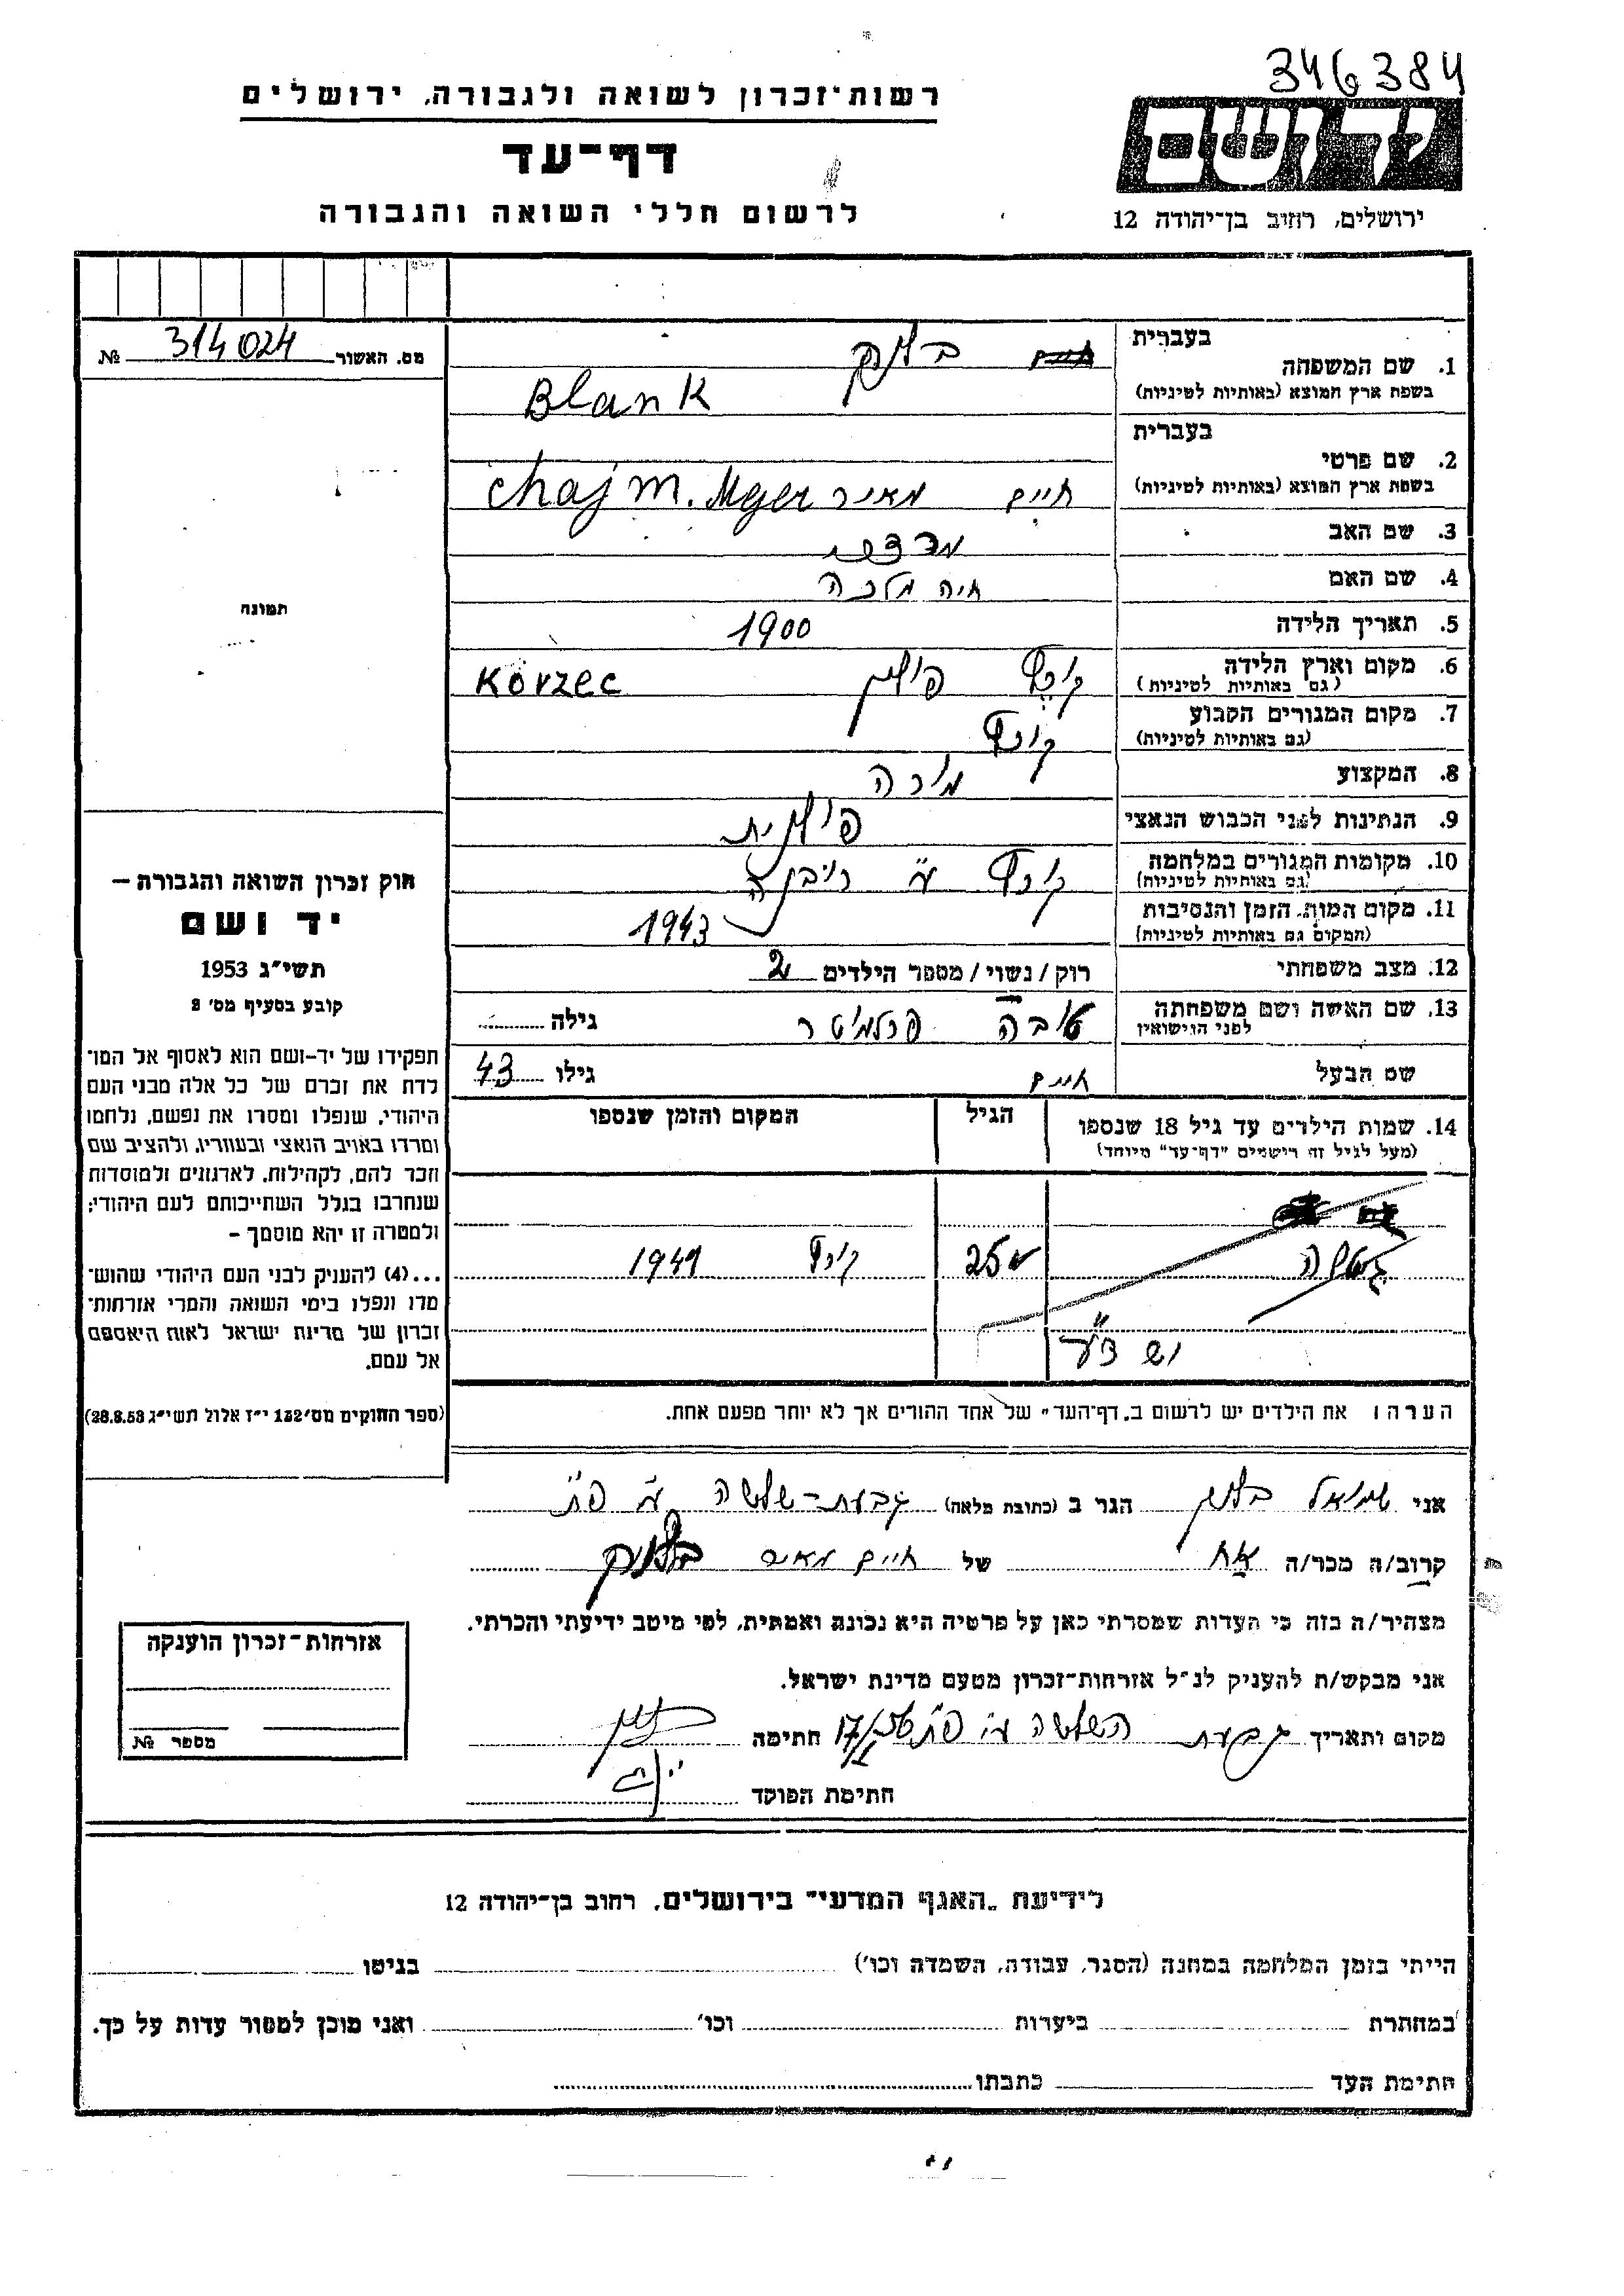 346384
רשות־זכרון לשואה ולגבורה, ירושלים
דף־עד
לרשום חללי השואה והגבורה
יד ושם
ירושלים, רחוב בן־יהודה 12
מס. האשור 314024 №
תמונה
חוק זכרון השואה והגבורה —
יד ושם
תשי״ג 1953
קובע בסעיף מס׳ 2
תפקידו של יד-ושם הוא לאסוף אל המו־
לדת את זכרם של כל אלה מבני העם
היהודי, שנפלו ומסרו את נפשם, נלחמו
ומרדו באויב הנאצי ובעוזריו, ולהציב שם
וזכר להם, לקהילות, לארגונים ולמוסדות
שנחרבו בגלל השתייכותם לעם היהודי;
ולמטרה זו יהא מוסמך –
...(4) להעניק לבני העם היהודי שהוש־
מדו ונפלו בימי השואה והמרי אזרחות־
זכרון של מדינת ישראל לאות היאספם
אל עמם.
(ספר החוקים מס׳ 132 י״ז אלול תשי״ג 28.8.53)
בעברית
1. שם המשפחה בלנק
בשפת ארץ המוצא (באותיות לטיניות) Blank
בעברית
2. שם פרטי
בשפת ארץ המוצא (באותיות לטיניות) חיים מאיר Chajm. Mger
3. שם האב מרדכי
4. שם האם חיה מלכה
5. תאריך הלידה 1900
6. מקום וארץ הלידה קורץ פולין Korzec
(גם באותיות לטיניות)
7. מקום המגורים הקבוע קורץ
(גם באותיות לטיניות)
8. המקצוע מורה
9. הנתינות לפני הכבוש הנאצי פולנית
10. מקומות המגורים במלחמה קורץ ע״י רובנה
(גם באותיות לטיניות)
11. מקום המות, הזמן והנסיבות 1943
(המקום גם באותיות לטיניות)
12. מצב משפחתי רוק / נשוי / מספר הילדים 2
13. שם האשה ושם משפחתה טובה פרלמוטר גילה
לפני הנישואין
שם הבעל חיים גילו 43
14. שמות הילדים עד גיל 18 שנספו הגיל המקום והזמן שנספו
(מעל לגיל זה רישמים "דף־עד" מיוחד)
25 קורץ 1941
יש ד״ע
הערה: את הילדים יש לרשום ב„דף־העד" של אחד ההורים אך לא יותר מפעם אחת.
אני שמואל בלנק הגר ב (כתובת מלאה) גבעת-שלשה ע״י פ״ת
קרוב/ה מכר/ה אח של חיים מאיר בלנק
מצהיר/ה בזה כי העדות שמסרתי כאן על פרטיה היא נכונה ואמתית, לפי מיטב ידיעתי והכרתי.
אני מבקש/ת להעניק לנ״ל אזרחות־זכרון מטעם מדינת ישראל.
מקום ותאריך גבעת השלשה ע״י פ״ת חתימה
חתימת הפוקד
אזרחות־זכרון הוענקה
מספר №
לידיעת „האגף המדעי" בירושלים, רחוב בן־יהודה 12
הייתי בזמן המלחמה במחנה (הסגר, עבודה, השמדה וכו׳) בגיטו
במחתרת ביערות וכו׳ ואני מוכן למסור עדות על כך.
חתימת העד כתבתו